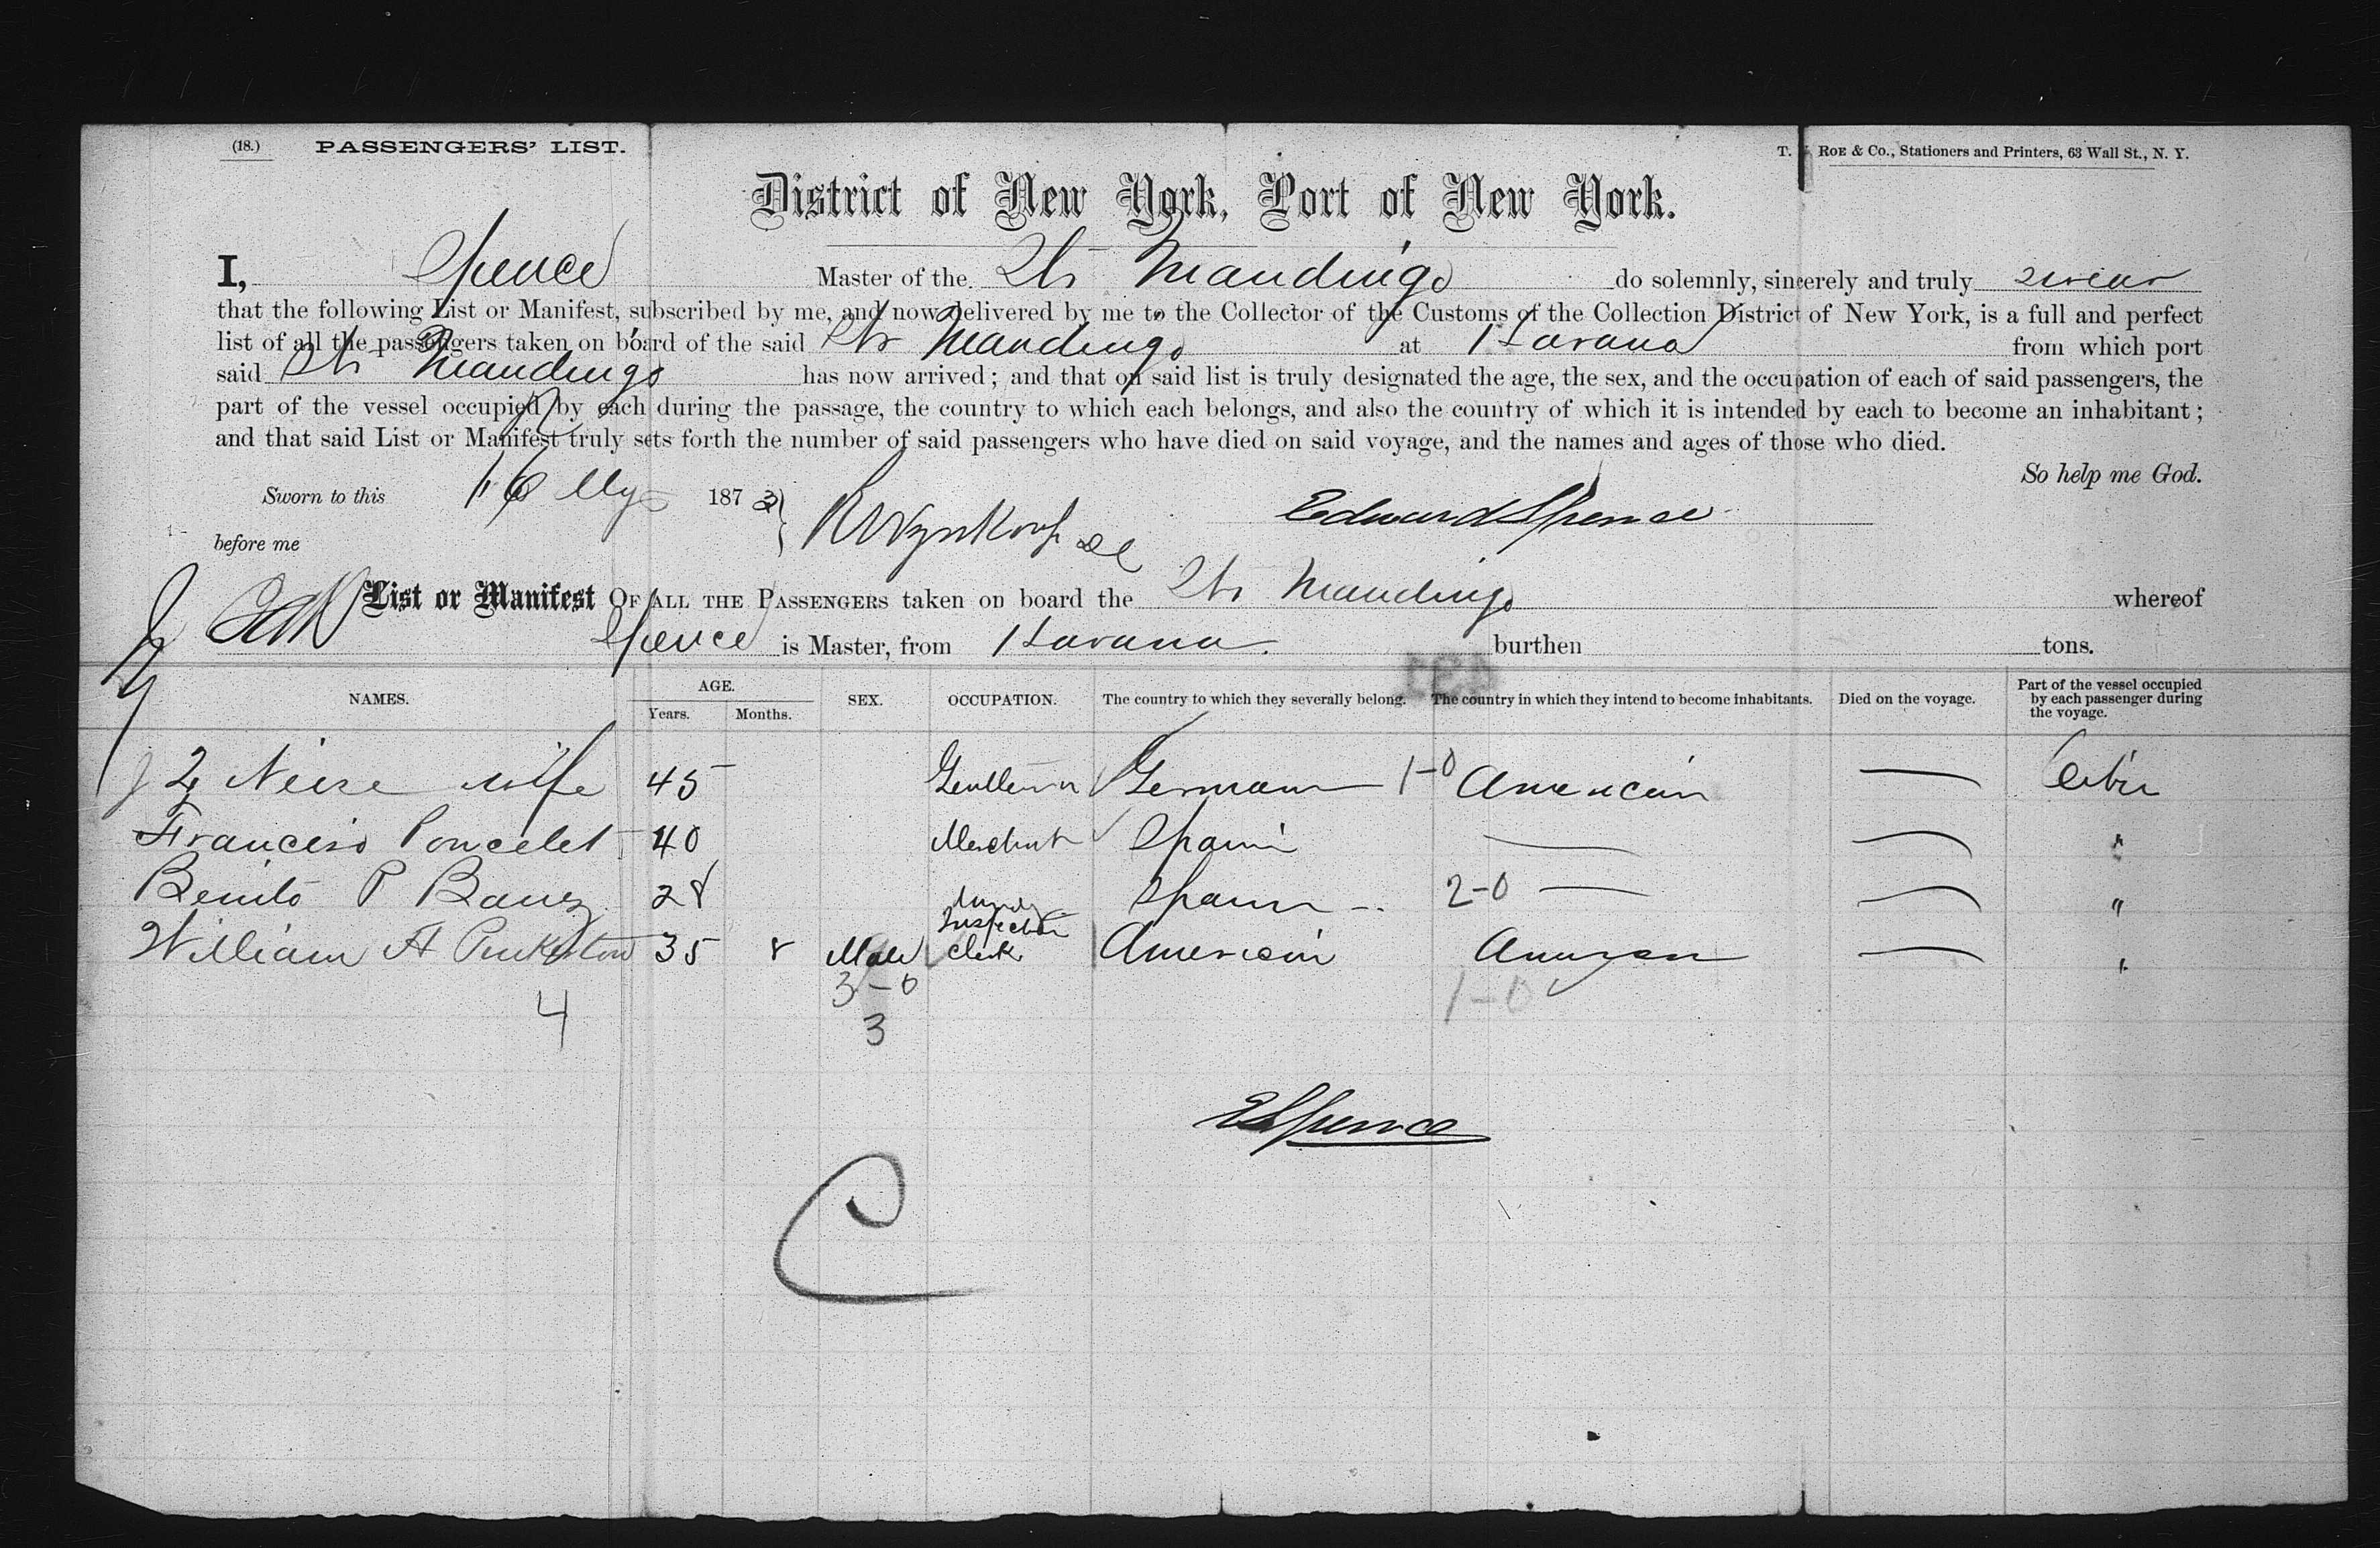 (18.) PASSENGERS' LIST.
T. ROE & Co., Stationers and Printers, 63 Wall St., N. Y.
District of New York, Port of New York.
I, Spence Master of the Str Mandingo do solemnly, sincerely and truly swear
that the following List or Manifest, subscribed by me, and now delivered by me to the Collector of the Customs of the Collection District of New York, is a full and perfect
list of all the passengers taken on board of the said Str Mandingo at Havana from which port
said Str Mandingo has now arrived; and that on said list is truly designated the age, the sex, and the occupation of each of said passengers, the
part of the vessel occupied by each during the passage, the country to which each belongs, and also the country of which it is intended by each to become an inhabitant;
and that said List or Manifest truly sets forth the number of said passengers who have died on said voyage, and the names and ages of those who died.
So help me God.
Sworn to this 16 1873
Edward Spence
before me
List or Manifest OF ALL THE PASSENGERS taken on board the Str Mandingo whereof
Spence is Master, from Havana. burthen tons.
NAMES. AGE. Years. Months. SEX. OCCUPATION. The country to which they severally belong. The country in which they intend to become inhabitants. Died on the voyage. Part of the vessel occupied by each passenger during the voyage.
wife 45 Gentleman German 1-0 American — Cabin
Francisco Poncelet 40 Merchant Spain — — "
Benito P 28 Spain 2-0 — — "
William A Pinkerton 35 8 Male Clerk American — "
3-0 1-0
4
3
E Spence
C